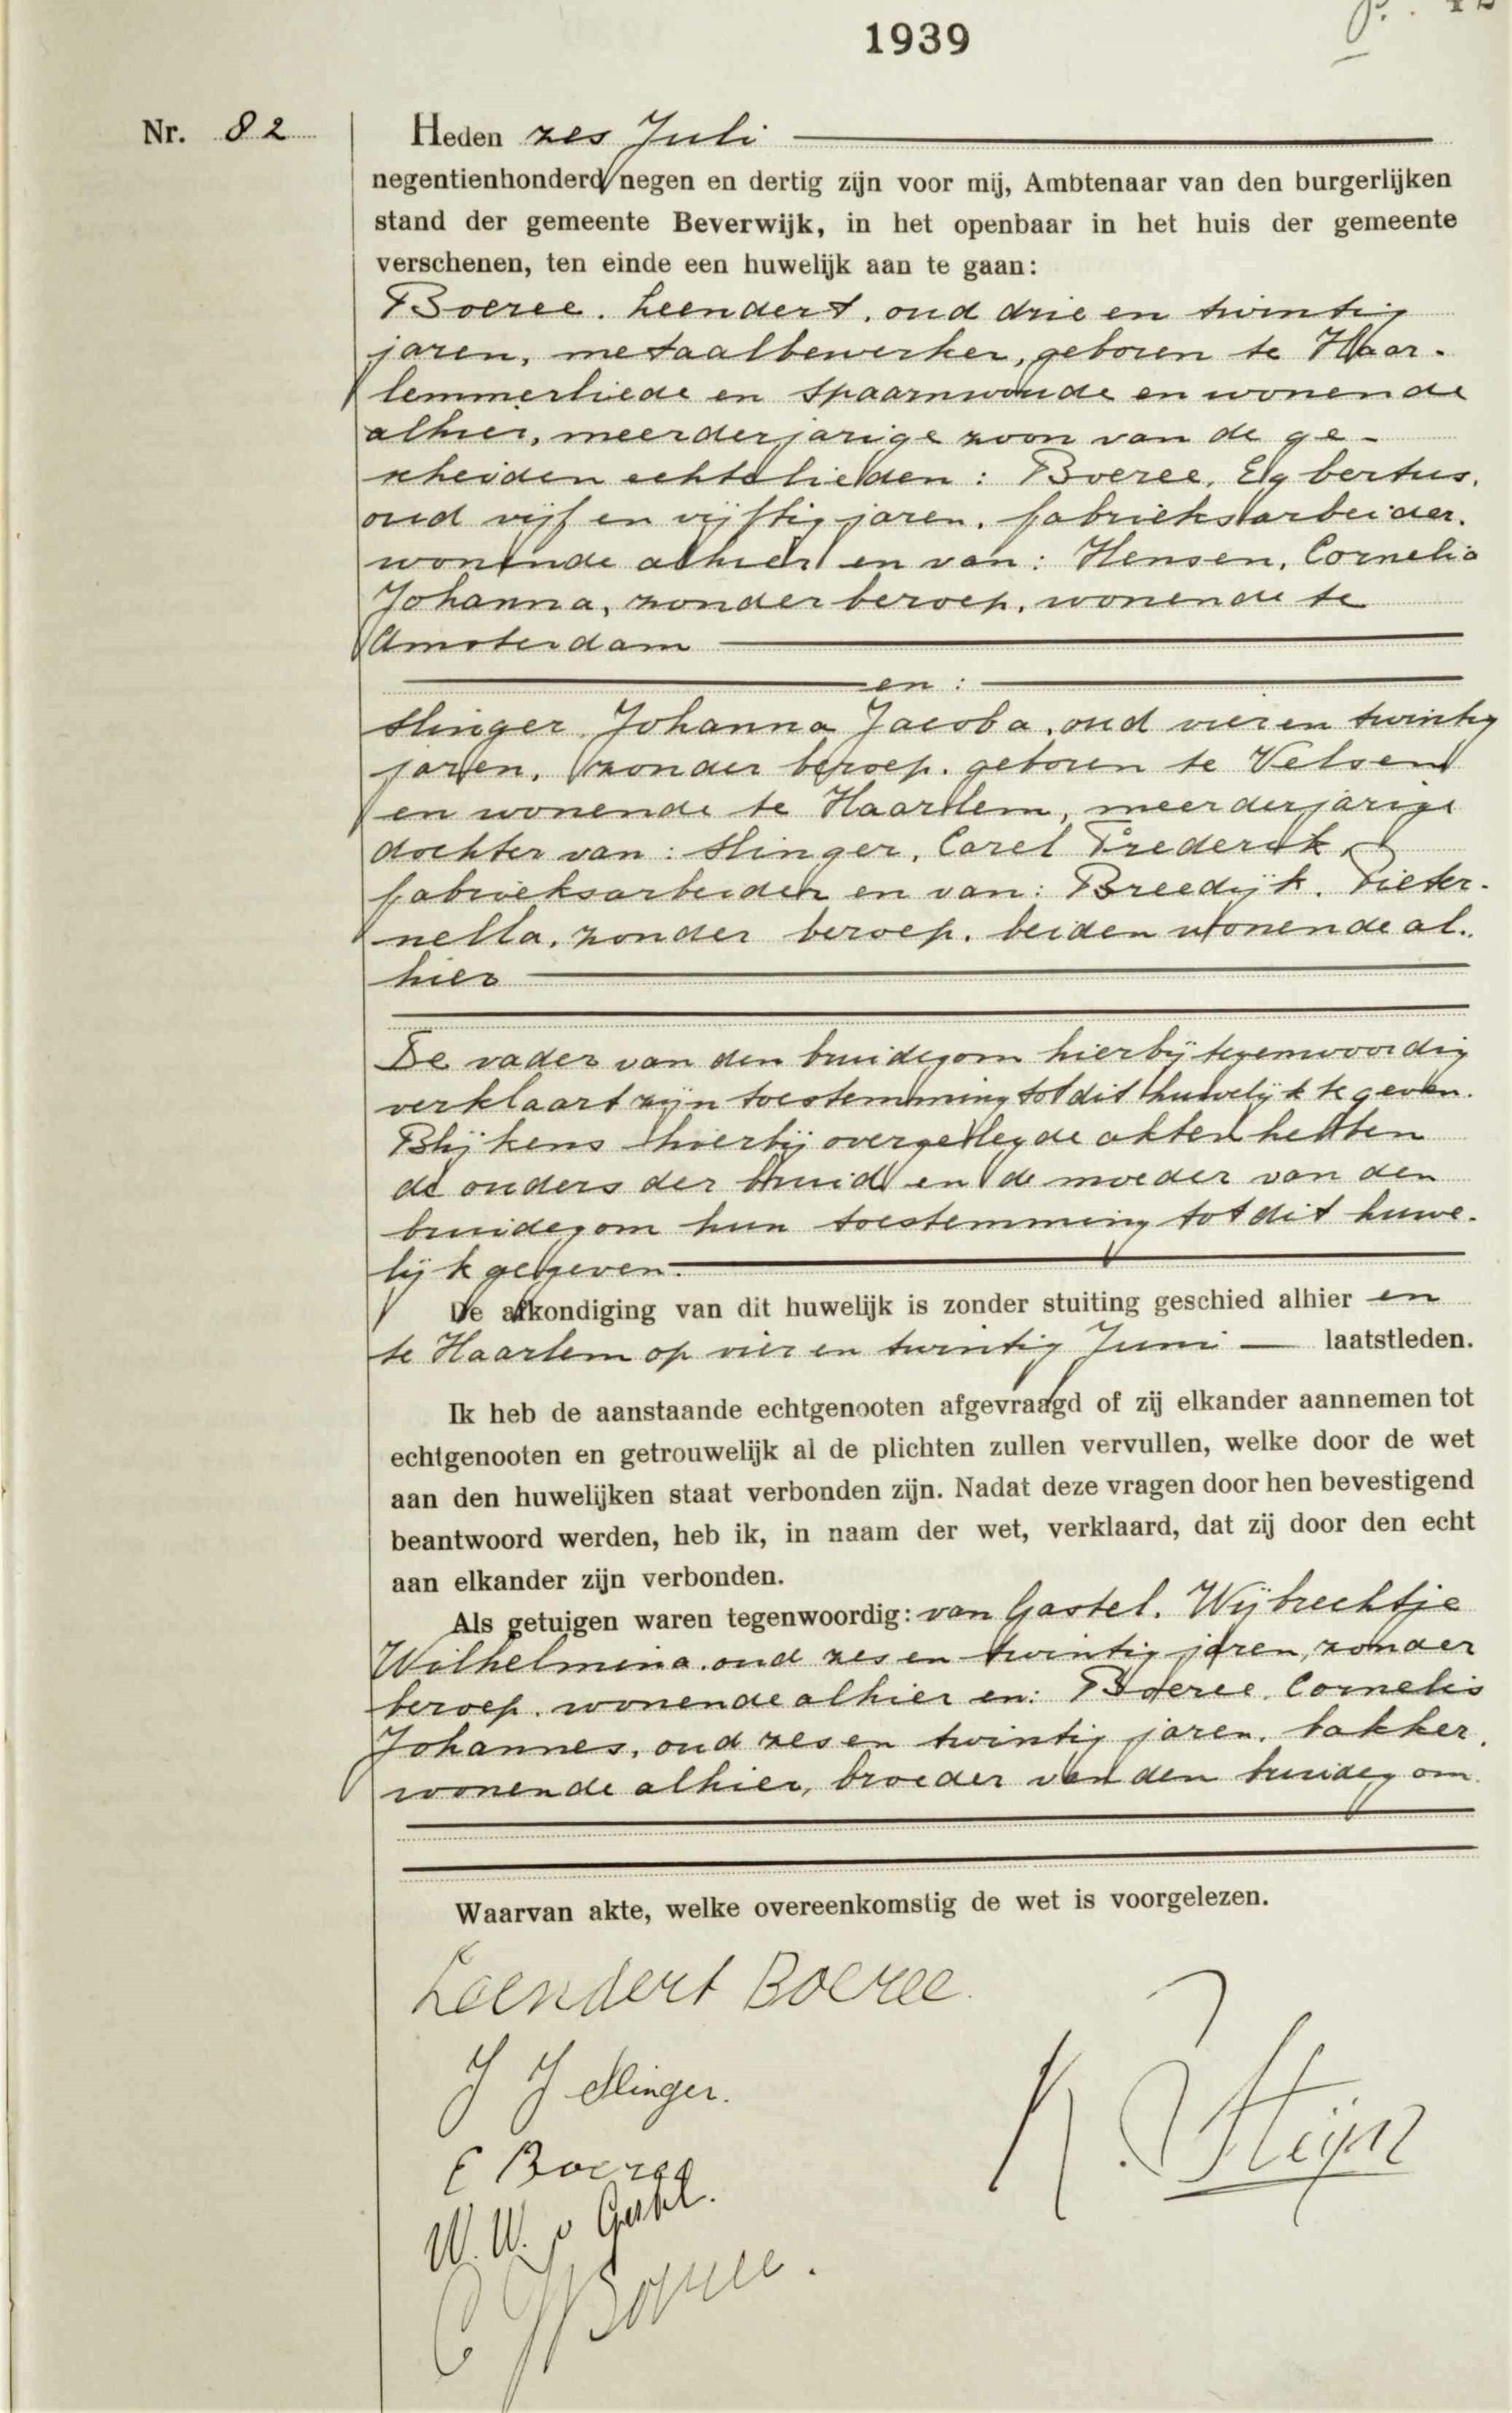 1939
Nr. 82
Heden zes Juli
negentienhonderd negen en dertig zijn voor mij, Ambtenaar van den burgerlijken
stand der gemeente Beverwijk, in het openbaar in het huis der gemeente
verschenen, ten einde een huwelijk aan te gaan:
Boeree. Leendert, oud drie en twintig
jaren, metaalbewerker, geboren te Haar-
lemmerliede en Spaarnwoude en wonende
alhier, meerderjarige zoon van de ge-
scheiden echtelieden: Boeree, Egbertus,
oud vijf en vijftig jaren, fabrieksarbeider,
wonende alhier en van: Hensen, Cornelia
Johanna, zonder beroep, wonende te
Amsterdam
en:
Slinger, Johanna Jacoba, oud vier en twintig
jaren, zonder beroep, geboren te Velsen
en wonende te Haarlem, meerderjarige
dochter van: Slinger, Carel Frederik,
fabrieksarbeider en van: Breedijk, Pieter-
nella, zonder beroep, beiden wonende al-
hier
De vader van den bruidegom hierbij tegenwoordig
verklaart zijn toestemming tot dit huwelijk te geven.
Blijkens hierbij overgelegde akten hebben
de ouders der bruid en de moeder van den
bruidegom hun toestemming tot dit huwe-
lijk gegeven.
De afkondiging van dit huwelijk is zonder stuiting geschied alhier en
te Haarlem op vier en twintig Juni laatstleden.
Ik heb de aanstaande echtgenooten afgevraagd of zij elkander aannemen tot
echtgenooten en getrouwelijk al de plichten zullen vervullen, welke door de wet
aan den huwelijken staat verbonden zijn. Nadat deze vragen door hen bevestigend
beantwoord werden, heb ik, in naam der wet, verklaard, dat zij door den echt
aan elkander zijn verbonden.
Als getuigen waren tegenwoordig: van Gastel, Wijbrechtje
Wilhelmina, oud zes en twintig jaren, zonder
beroep, wonende alhier en: Boeree, Cornelis
Johannes, oud zes en twintig jaren, bakker,
wonende alhier, broeder van den bruidegom.
Waarvan akte, welke overeenkomstig de wet is voorgelezen.
Leendert Boeree.
J J Slinger.
E Boeree
W. W. v Gastel.
C J Boeree.